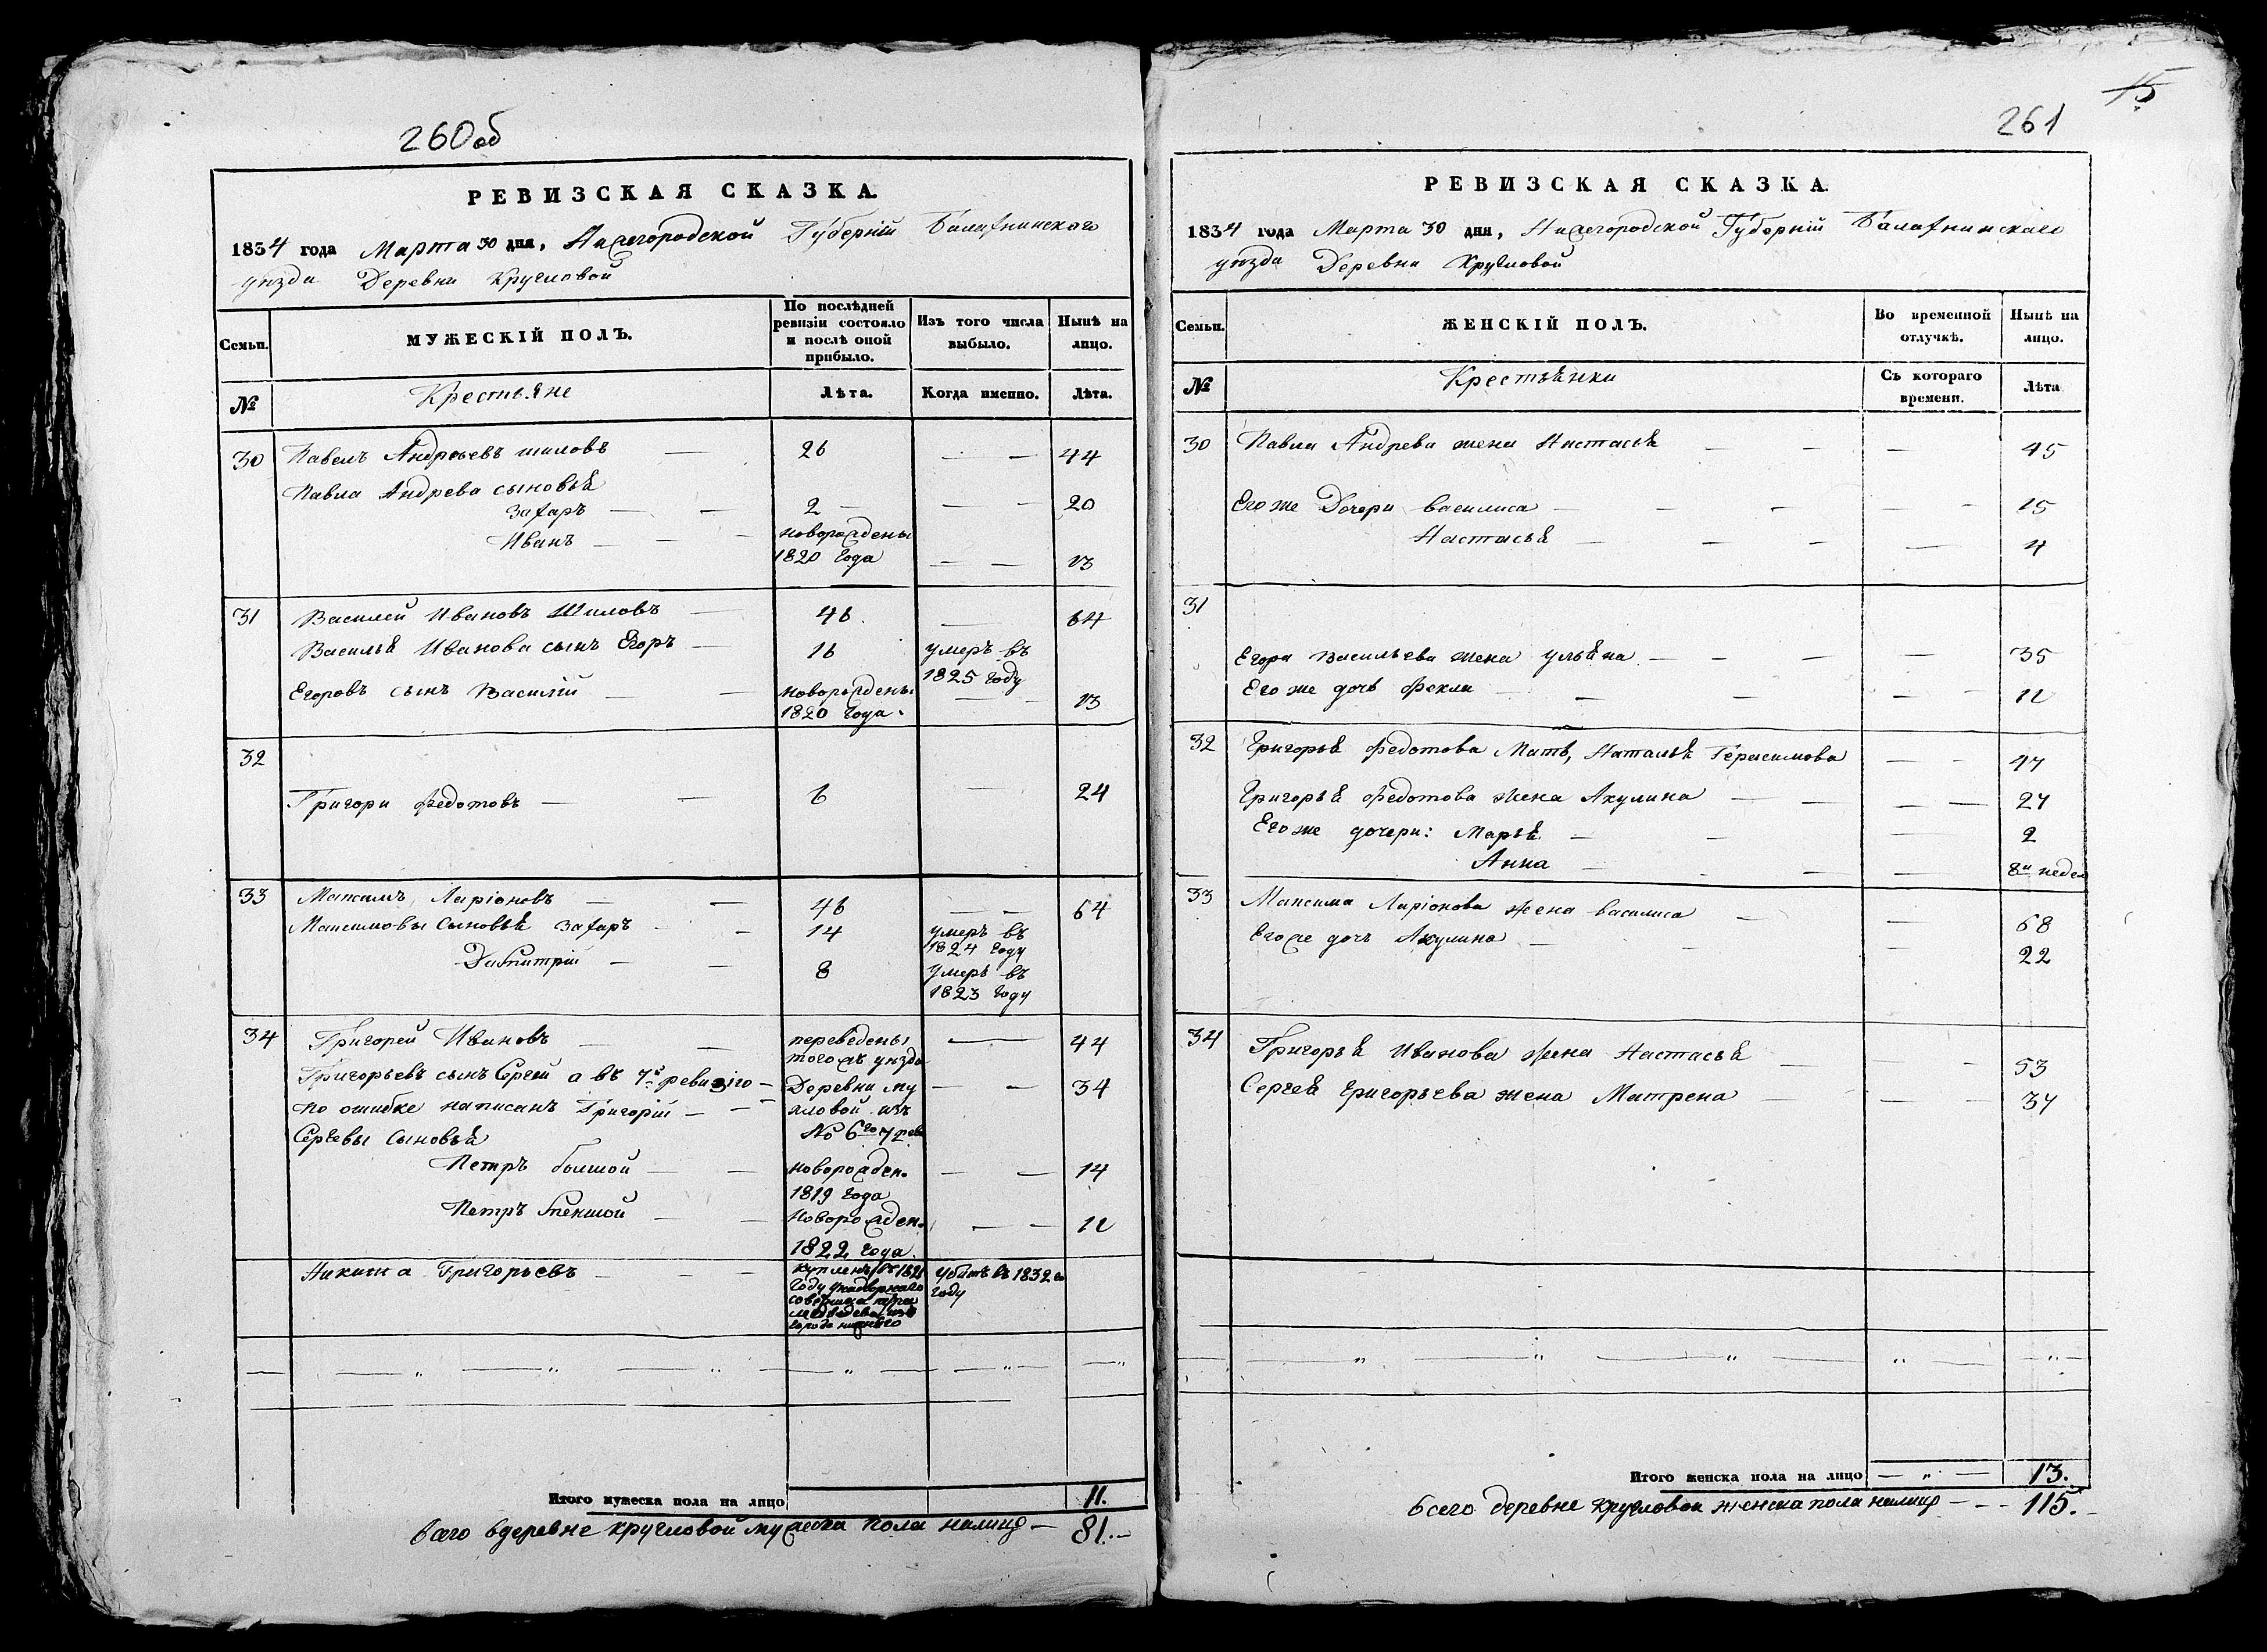 260об
РЕВИЗСКАЯ СКАЗКА.
1834 года Марта 30 дня, Нижегородской Губерніи Балахнинскаго
уезда Деревни Кругловой
Семьи. МУЖЕСКІЙ ПОЛЪ. По послѣдней ревизіи состояло и послѣ оной прибыло. Изъ того числа выбыло. Нынѣ на лицо.
№ Крестьяне Лѣта. Когда именно. Лѣта.
30 Павелъ Андреевъ шиловъ — 26 — — 44
Павла Андрева сыновья
Захаръ — — 2 — — — 20
Иванъ — — — новорожденъ
1820 года — — 13
31 Василей Ивановъ Шиловъ — 46. — 64
Василья Иванова сынъ Егоръ — 16 умеръ въ
1825 году
Егоровъ сынъ Василій — — новорожденъ
1820 года. — — 13
32
Григори Федотовъ — — 6 — 24
33 Максимъ Ларіоновъ — — 46 — — 64
Максимовы Сыновья Захаръ — — 14 умеръ въ
1824 году
Дмитрій — — 8 умеръ въ
1823 году
34 Григорей Ивановъ — — переведены — 44
тогожъ уезда
Григорьевъ сынъ Сергей а въ 7й ревизіго — Деревни — — 34
по ошибке написанъ Григорій — — изъ
№ 6го 7 рев
Сергевы Сыновья
Петръ болшой — — новорожден. — — 14
1819 года
Петръ меншой — — Новорожден. — — 12
1822 года.
Никита Григорьевъ — — — купленъ въ 1821 убитъ въ 1832
году у надворнаго году
советника
города нижняго
— — „ — „ — „ — „ — — „ — — „ — — „
Итого мужеска пола на лицо 11.
Всего вдеревне кругловой мужеска пола налицо — 81. —
15
261
РЕВИЗСКАЯ СКАЗКА.
1834 года Марта 30 дня, Нижегородской Губерніи Балахнинскаго
уезда Деревни Кругловой
Семьи. ЖЕНСКІЙ ПОЛЪ. Во временной отлучкѣ. Нынѣ на лицо.
№ Крестьянки Съ котораго времени. Лѣта
30 Павла Андрева жена Настасья — — — 45
Его же Дочери Василиса — — — — - 15
Настасья — — — — 4
31
Егора Васильева жена ульяна — — — — 35
Его же дочь Фекла — — — — 12
32 Григорья Федотова Мать, Наталья Герасимова — — 47
Григорья Федотова Жена Акулина — — — — 27
Его же дочери: Марья — — — 2
Анна — — — — 8и недел
33 Максима Ларіонова Жена василиса — — 68
Егоже дочь Акулина — — 22
34 Григорья Иванова Жена Настасья — — — 53
Сергея Григорьева жена Матрена — — — 37
— — „ — „ — „ — „ — — „ —
Итого женска пола на лицо — „ — 13.
Всего деревне кругловой женска пола налицо — - - 115.